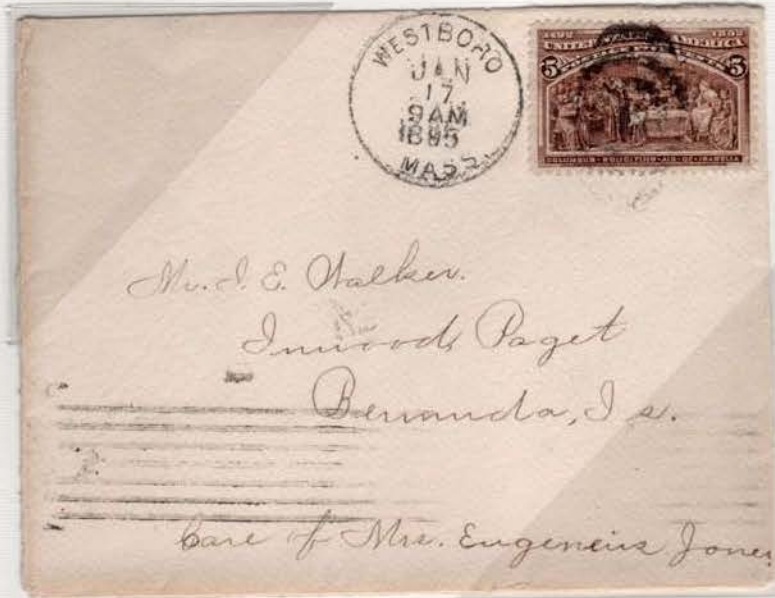 WESTBORO
JAN
17
9AM
1895
MASS.
1492 1892
UNITED STATES OF AMERICA
5 5
COLUMBUS SOLICITING AID OF ISABELLA
Mr. I. E. Walker.
Inwood, Paget
Bermuda, Is.
Care of Mrs. Eugeneius Jones